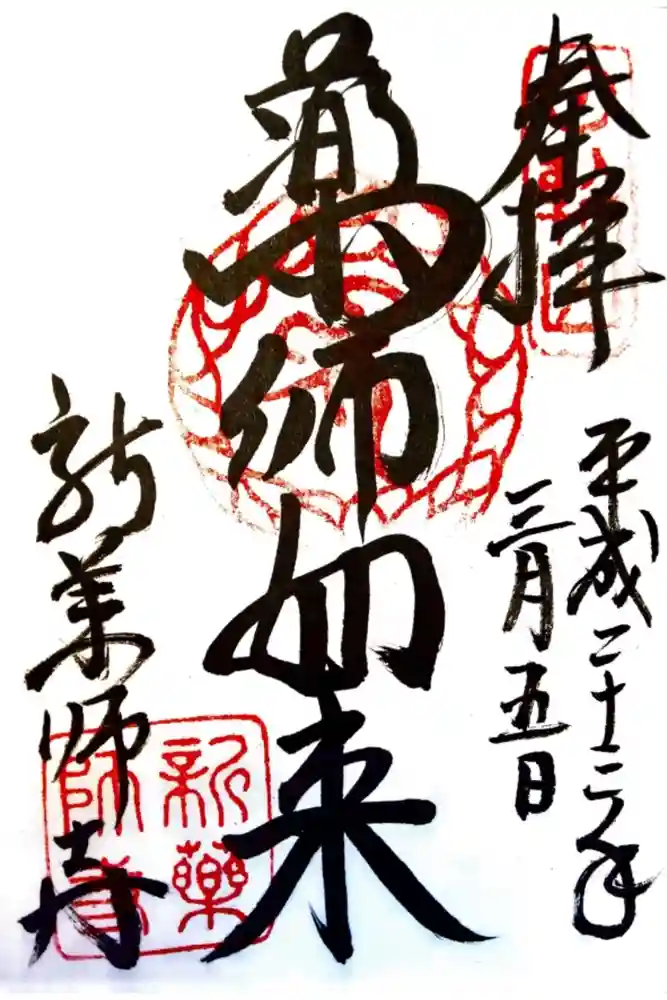 奉拝
平成二十三年
三月五日
薬師如来
新薬師寺
新藥
師寺